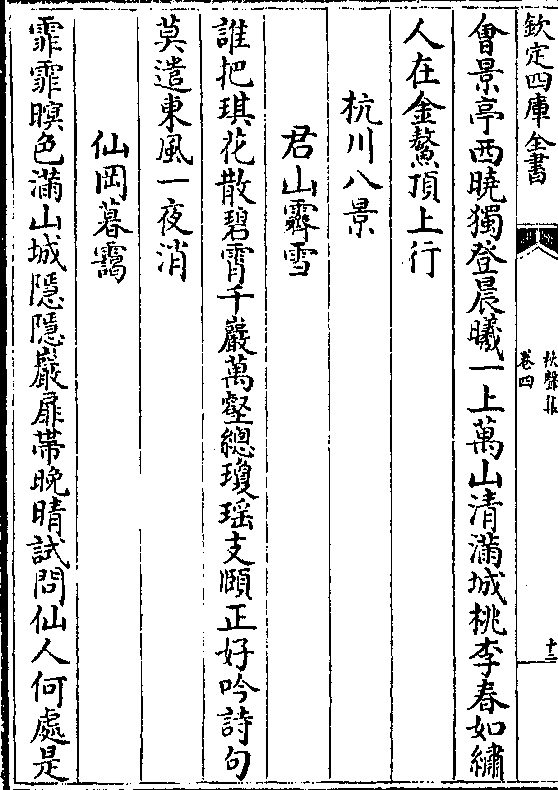 欽定四庫全書
秋聲集
卷四
十二
會景亭西曉獨登晨曦一上萬山清滿城桃李春如繡
人在金鰲頂上行
杭川八景
君山霽雪
誰把琪花散碧霄千巖萬壑總瓊瑤支頤正好吟詩句
莫遣東風一夜消
仙岡暮靄
霏霏暝色滿山城隱隱巖扉帶晚晴試問仙人何處是